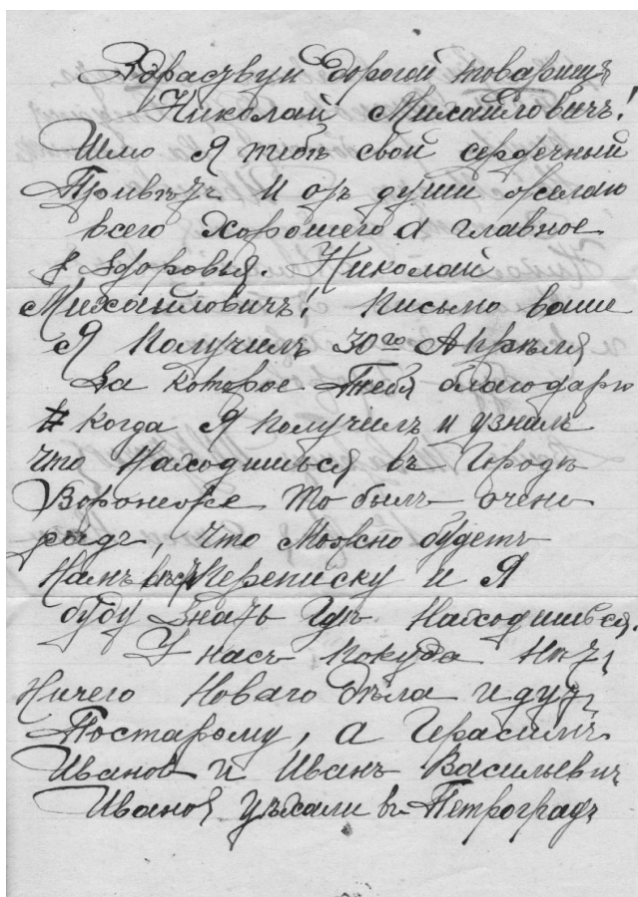 Здраствуй дорогой товарищъ
Николай Михайловичъ!
Шлю Я тебѣ свой сердечный
Привѣтъ и отъ души желаю
всего хорошего а главное
здоровья. Николай
Михайловичъ! письмо ваше
Я получилъ 30го Апрѣля
За которое Тебя благодарю
Когда Я получилъ и узналъ
что находишься въ Городѣ
Воронеже то былъ очень
радъ, что можно будетъ
Намъ Переписку и Я
буду знать Гдѣ Находишься.
У насъ покуда Нѣтъ
Ничего Новаго дѣла идутъ
Постарому, а Герасимъ
Иванов и Иванъ Васильевич
Иванов уѣхали въ Петроградъ